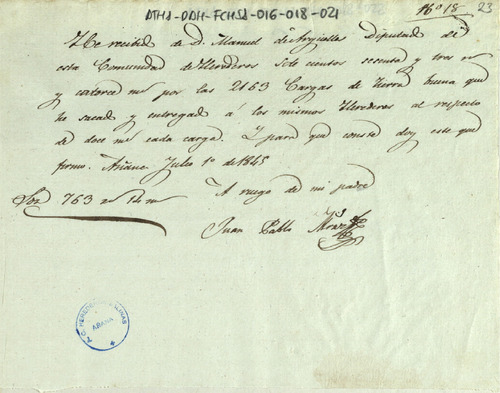 ATHA-DDH-FCHSA-016-018-021
Nº 18 23
He recibido de D. Manuel de Argialles Diputado de
esta Comunidad de Herederos Sete cientos secenta y tres r
y catorce ms por las 2163 Cargas de tierra buena que
ha sacado y entregado á los mismos Herederos al respecto
de doce ms cada carga. Y para que conste doy este que
firmo. Añana Julio 1º de 1845
Son 763 rs 14 ms
A ruego de mi padre
Juan Pablo